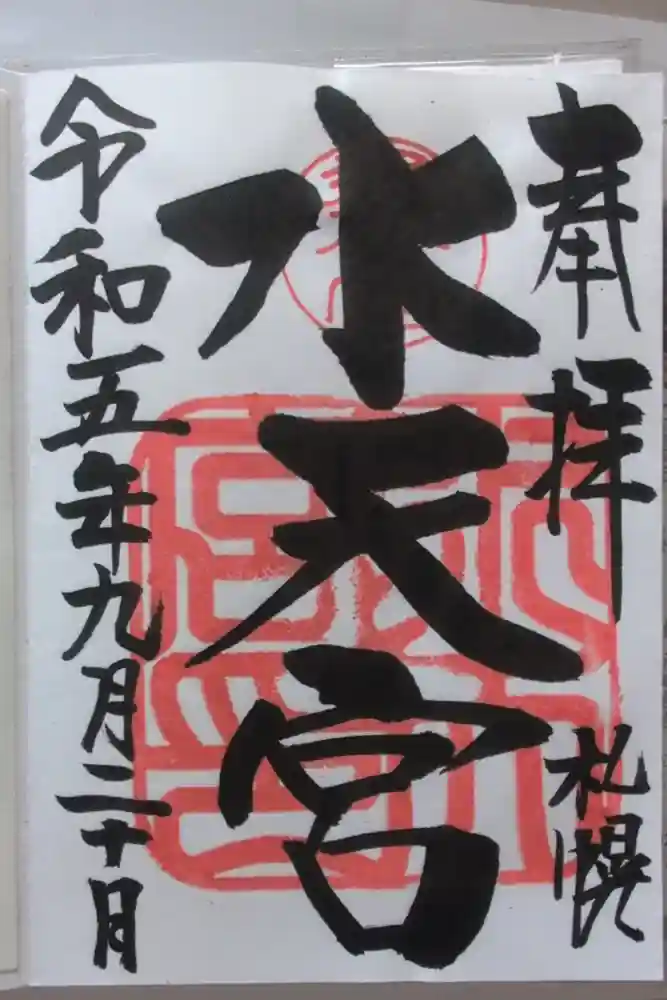 奉拝 札幌
水天宮
令和五年九月二十月